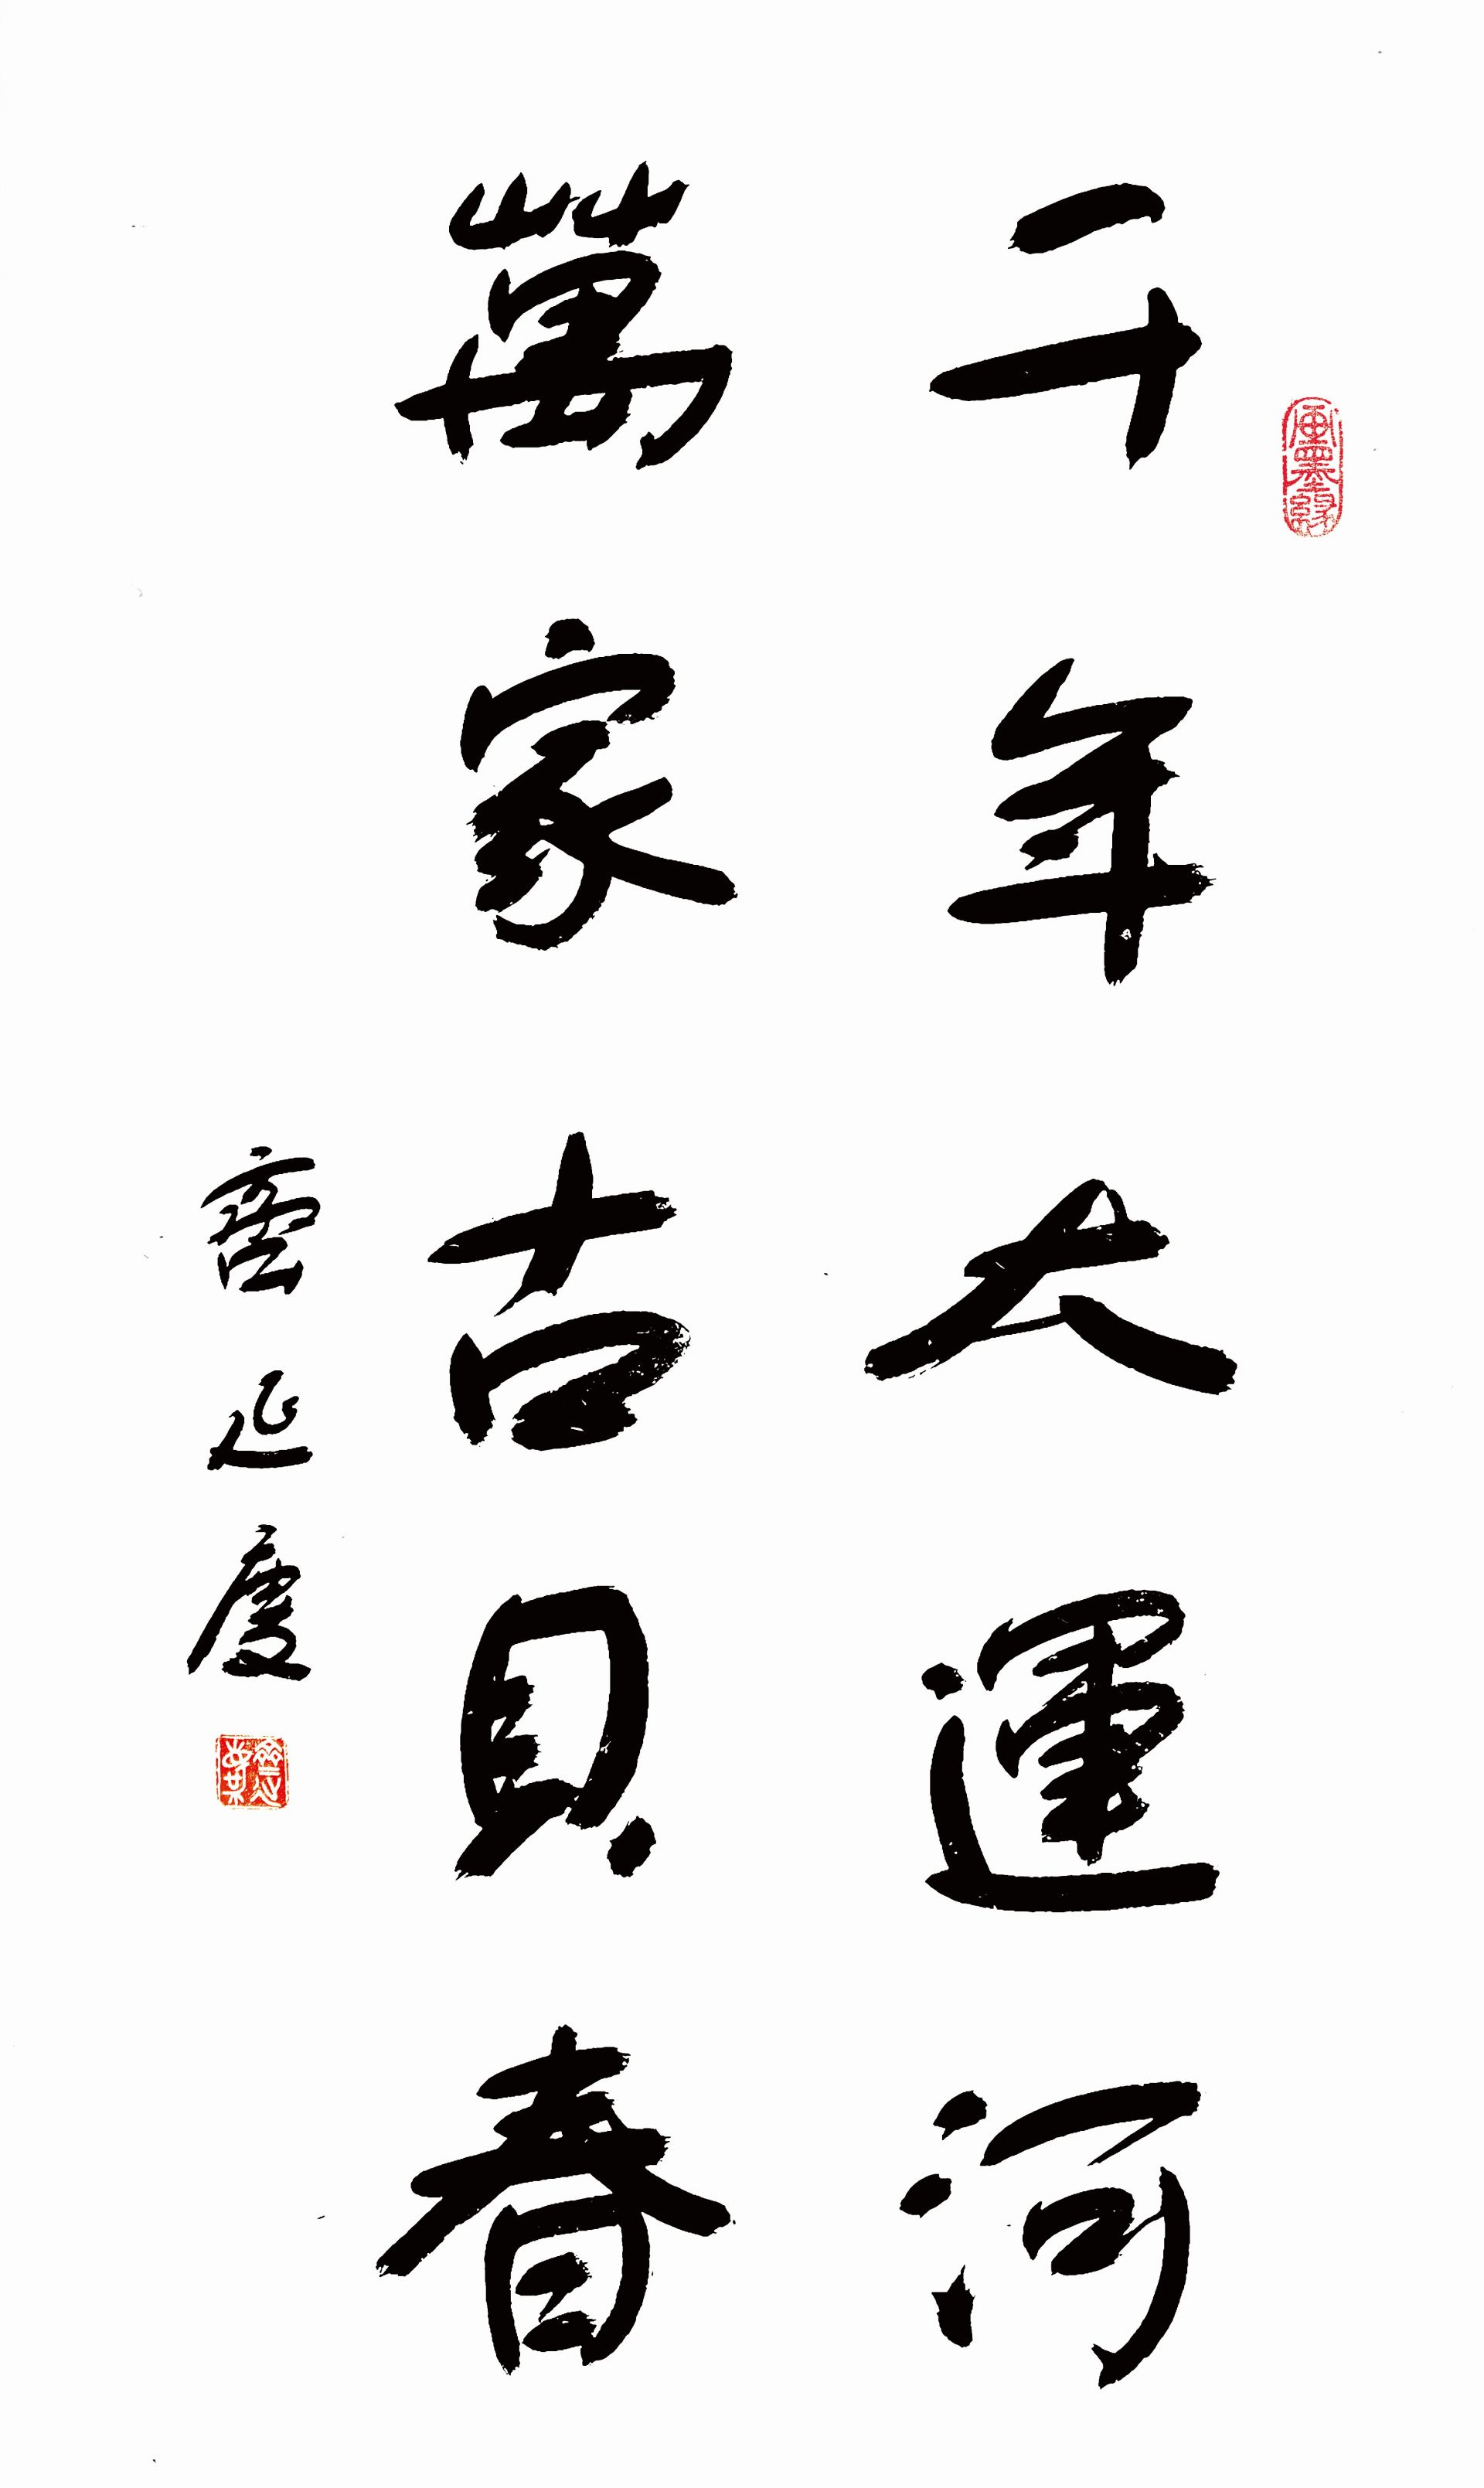 千年大運河
萬家吉貝春
齊延慶